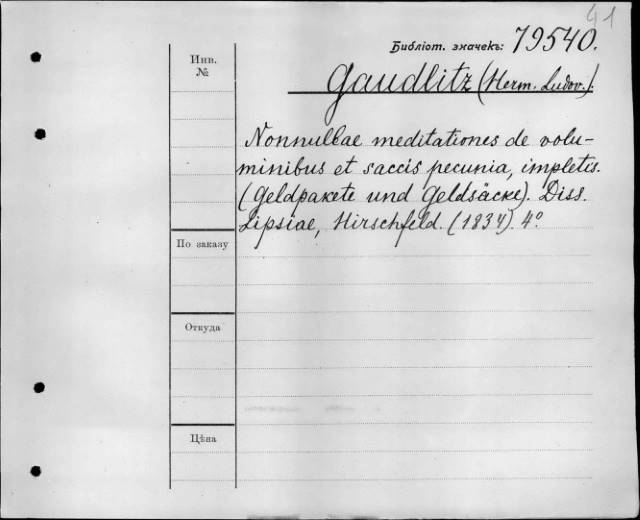 41
Библіот. значекъ: 79540.
Инв.
№
Gaudlitz (Herm. Ludov.).
Nonnullae meditationes de volu-
minibus et saccis pecunia, impletis.
(Geldpakete und Geldsäcke). Diss.
Lipsiae, Hirschfeld. (1834). 4°
По заказу
Откуда
Цѣна